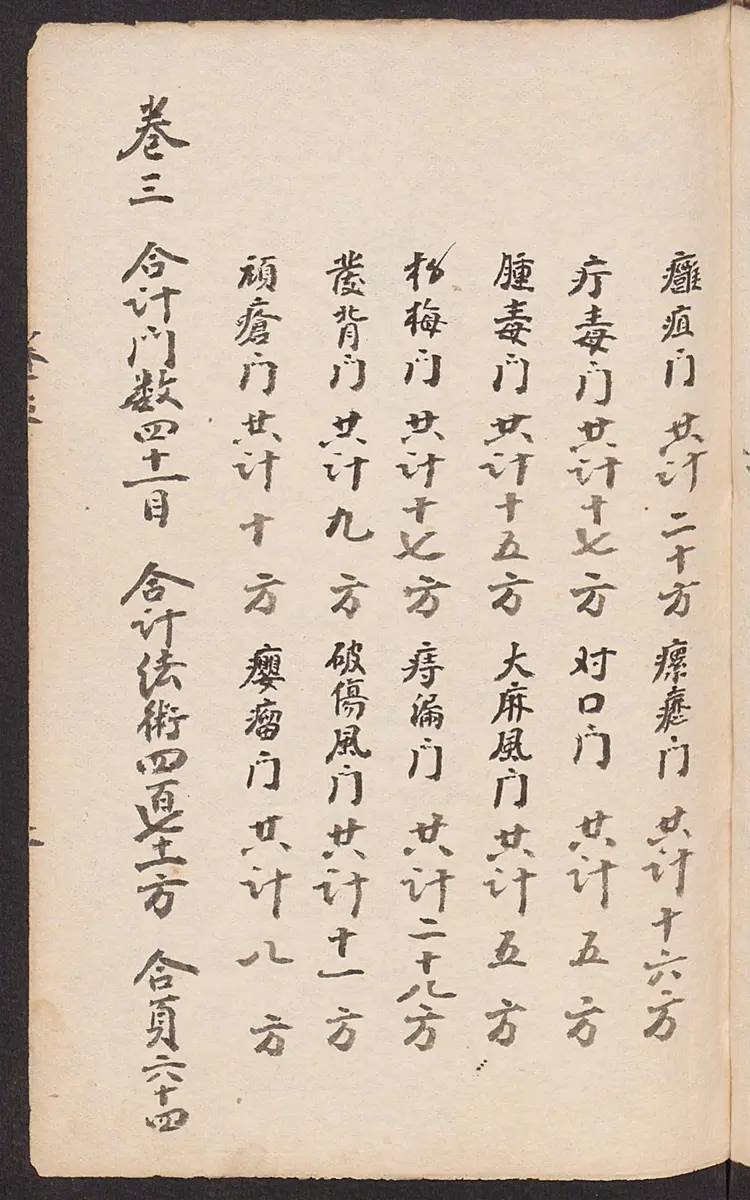 癰疽门 共计二十方 瘰癧门 共计十六方
疔毒门 共计十七方 对口门 共计五方
腫毒门 共计十五方 大麻風门 共计五方
杨梅门 共计十七方 痔漏门 共计二十八方
發背门 共计九方 破傷風门 共计十一方
頑瘡门 共计十方 癭瘤门 共计八方
卷三 合计门数四十一目 合计法術四百七十一方 合頁六十四